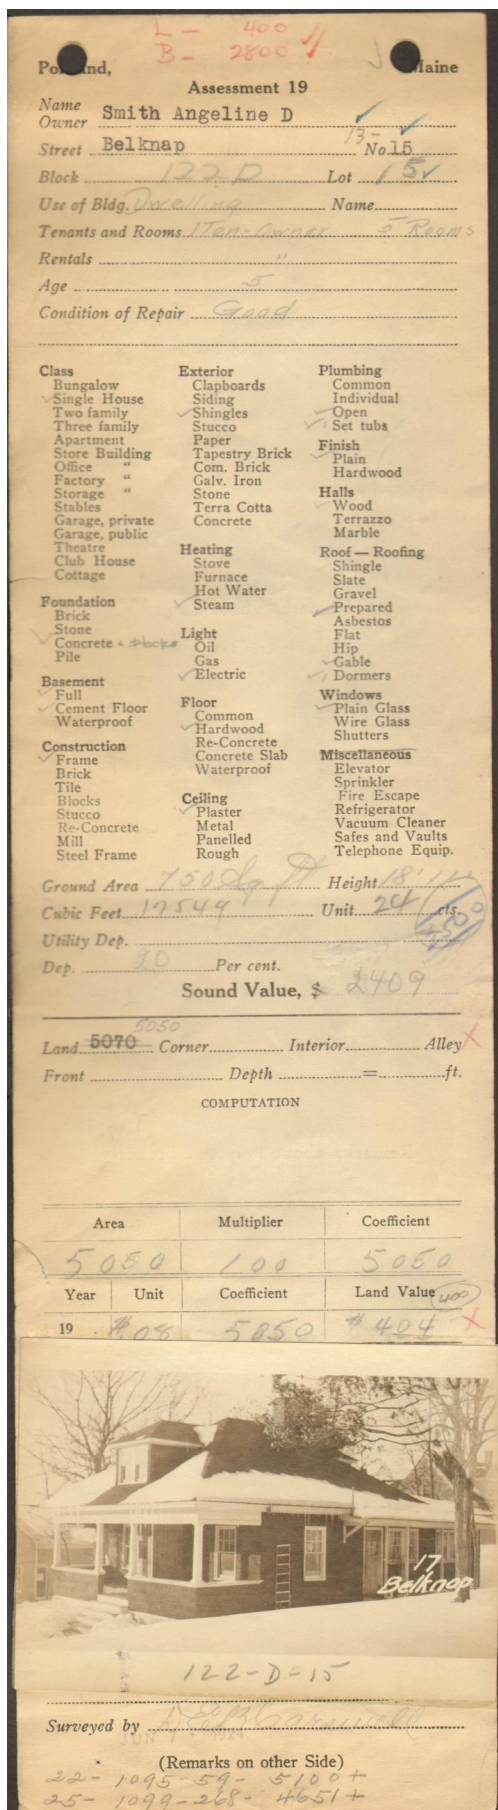 L - 400
B - 2800
Portland, Maine
Assessment 19
Name
Owner Smith Angeline D
13-
Street Belknap No. 15
Block 122-D Lot 15
Use of Bldg. Dwelling Name
Tenants and Rooms 1 Ten-Owner 5 Rooms
Rentals "
Age 5
Condition of Repair Good
Class
Bungalow
Single House
Two family
Three family
Apartment
Store Building
Office "
Factory "
Storage "
Stables
Garage, private
Garage, public
Theatre
Club House
Cottage
Foundation
Brick
Stone
Concrete - Blocks
Pile
Basement
Full
Cement Floor
Waterproof
Construction
Frame
Brick
Tile
Blocks
Stucco
Re-Concrete
Mill
Steel Frame
Exterior
Clapboards
Siding
Shingles
Stucco
Paper
Tapestry Brick
Com. Brick
Galv. Iron
Stone
Terra Cotta
Concrete
Heating
Stove
Furnace
Hot Water
Steam
Light
Oil
Gas
Electric
Floor
Common
Hardwood
Re-Concrete
Concrete Slab
Waterproof
Ceiling
Plaster
Metal
Panelled
Rough
Plumbing
Common
Individual
Open
Set tubs
Finish
Plain
Hardwood
Halls
Wood
Terrazzo
Marble
Roof — Roofing
Shingle
Slate
Gravel
Prepared
Asbestos
Flat
Hip
Gable
Dormers
Windows
Plain Glass
Wire Glass
Shutters
Miscellaneous
Elevator
Sprinkler
Fire Escape
Refrigerator
Vacuum Cleaner
Safes and Vaults
Telephone Equip.
Ground Area 750 Sq Ft Height 18'
Cubic Feet 12549 Unit 24 cts.
Utility Dep.
Dep. 20 Per cent.
Sound Value, $ 2409
5050
Land 5070 Corner Interior Alley
Front Depth = ft.
COMPUTATION
Area Multiplier Coefficient
5050 100 5050
Year Unit Coefficient Land Value 400
19 $.08 5050 $404
17
Belknap
122-D-15
Surveyed by
JUN
(Remarks on other Side)
22- 1095-59- 5100+
25- 1099-268- 4651+